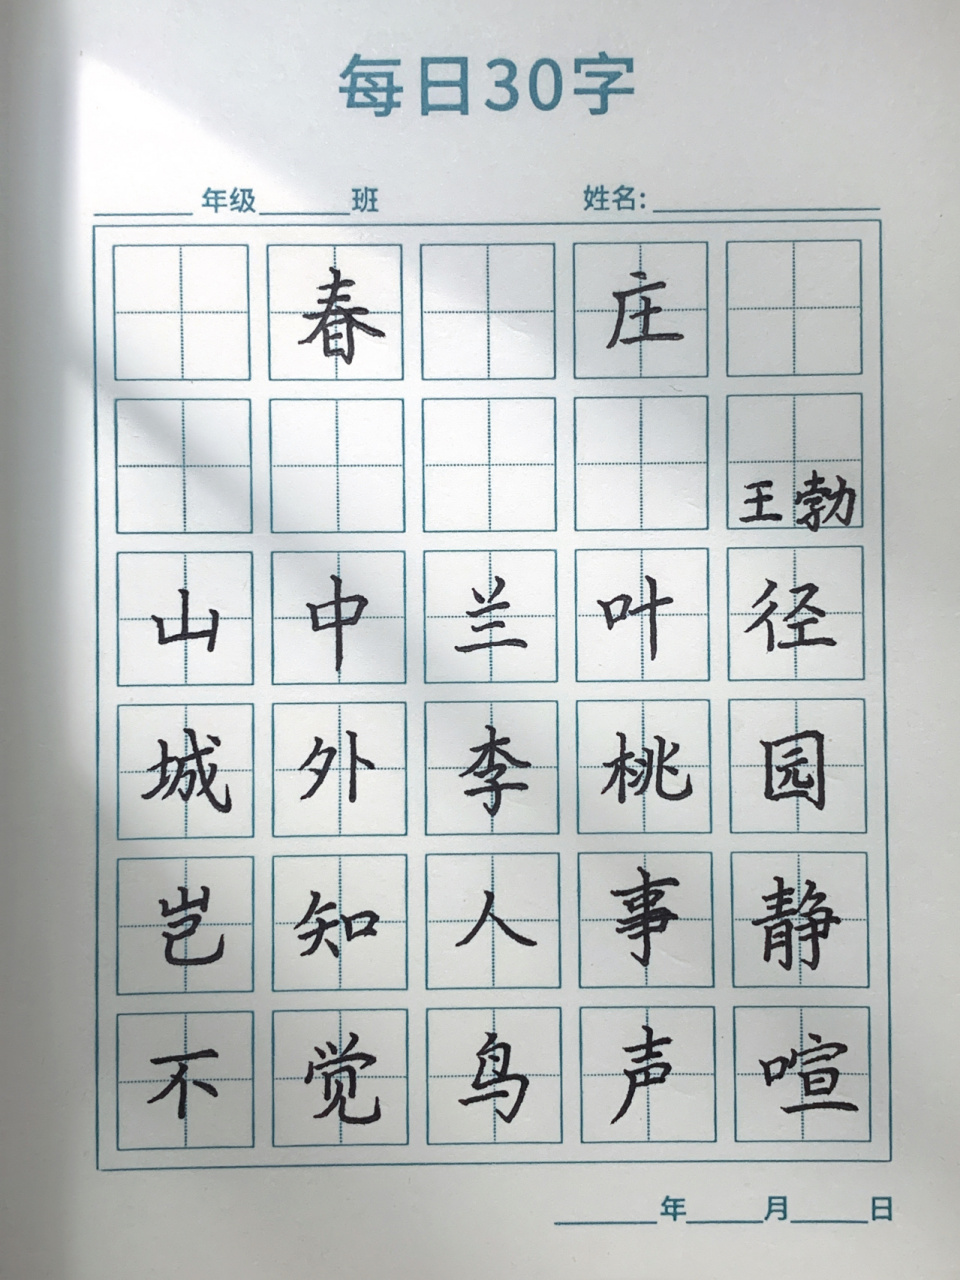 每日30字
____年级____班 姓名:________
春 庄
王勃
山中兰叶径
城外李桃园
岂知人事静
不觉鸟声喧
____年____月____日